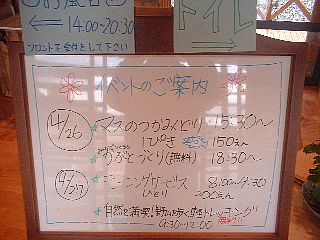 お風呂
← 14:00~20:30
フロントで受付をして下さい
トイレ
→
イベントのご案内
4/26
マスのつかみどり 15:30~
1ぴき 150えん
づくり(無料) 18:30~
4/27
モーニングサービス 8:00~9:30
ひとり 200えん
自然を満喫!新山歩く 軽トレッキング
9:30~12:00